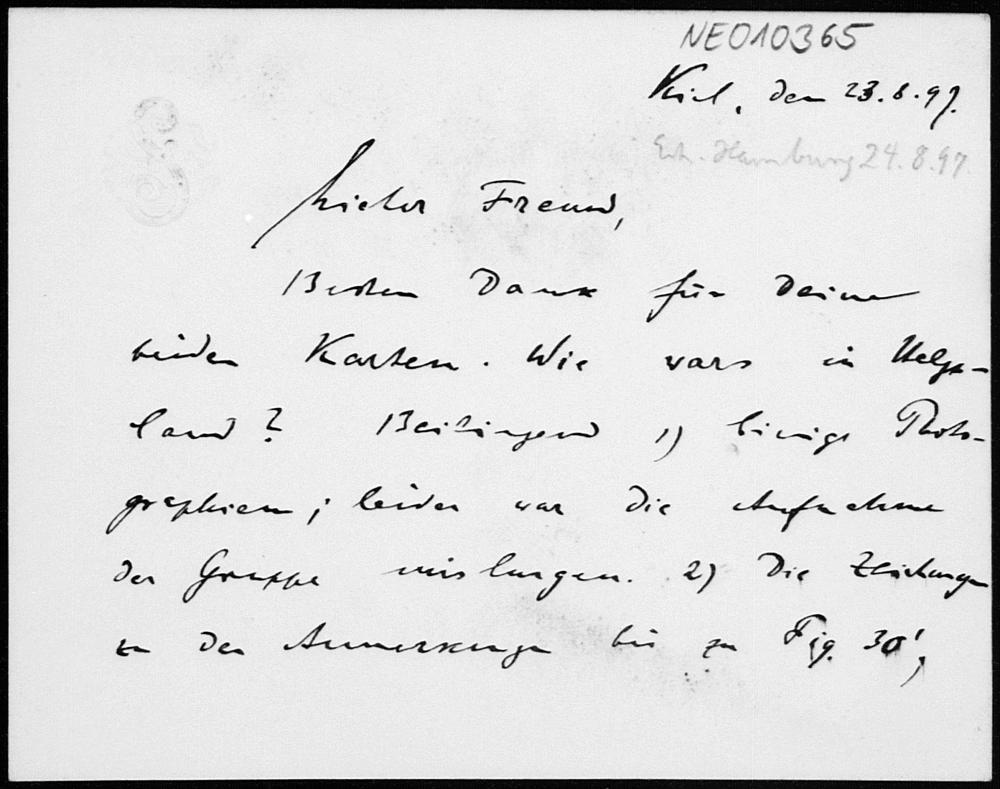 NEO10365
Kiel, den 23.8.97.
Erh. Hamburg 24.8.97.
Lieber Freund,
Besten Dank für Deine
beiden Karten. Wie wars in Helgo-
land? Beiliegend 1) Einige Photo-
graphien; leider war die Aufnahme
der Gruppe mislungen. 2) Die Zeichnungen
zu den Anmerkungen bis zu Fig. 30',